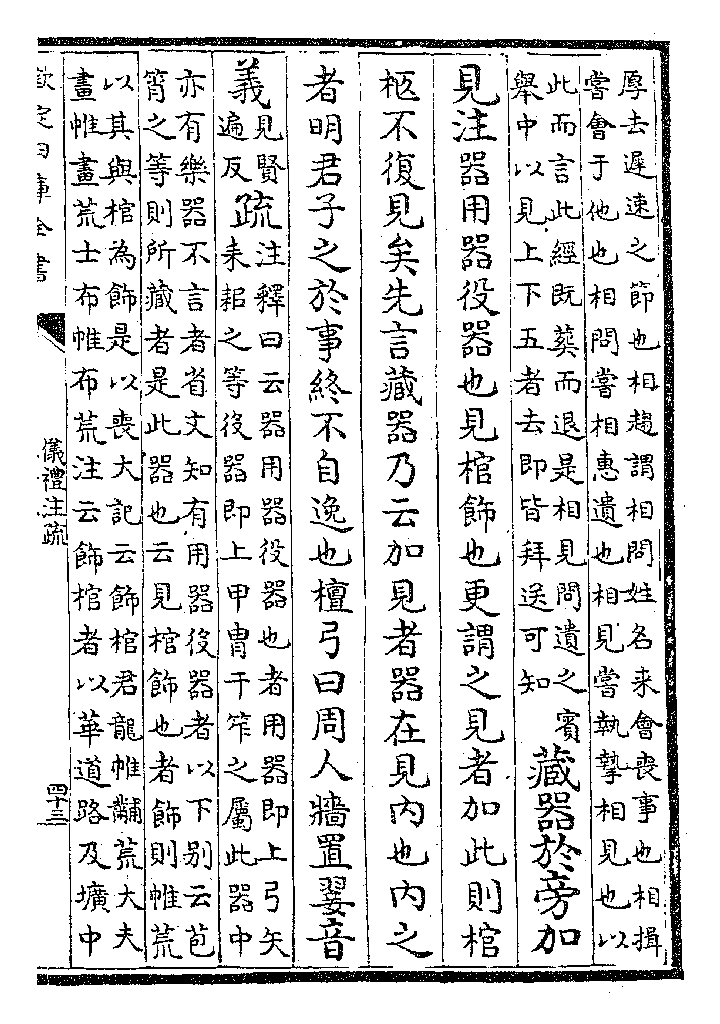 厚去遲速之節也相趨謂相問姓名来會喪事也相揖
嘗會于他也相問嘗相惠遺也相見嘗執摯相見也以
此而言此經既葬而退是相見問遺之賓
舉中以見上下五者去即皆拜送可知
藏器於旁加
見注器用器役器也見棺飾也更謂之見者加此則棺
柩不復見矣先言藏器乃云加見者器在見内也内之
者明君子之於事終不自逸也檀弓曰周人牆置翣音
義
見賢
遍反
疏
注釋曰云器用器役器也者用器即上弓矢
耒耜之等役器即上甲冑干笮之屬此器中
亦有樂器不言者省文知有用器役器者以下别云苞
筲之等則所藏者是此器也云見棺飾也者飾則帷荒
以其與棺為飾是以喪大記云飾棺君龍帷黼荒大夫
畫帷畫荒士布帷布荒注云飾棺者以華道路及壙中
欽定四庫全書
儀禮注疏
四十三